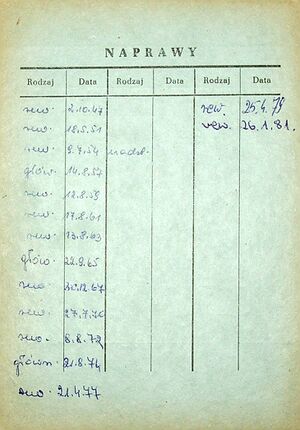 NAPRAWY
Rodzaj Data Rodzaj Data Rodzaj Data
rew. 2.10.47 rew. 25.4.79
rew. 18.5.51 rew. 26.1.81.
rew. 9.7.54 nadzw.
główn. 14.8.57
rew. 12.8.59
rew. 17.8.61
rew. 13.8.63
główn. 22.9.65
rew. 10.12.67
rew. 27.7.70
rew. 8.8.72
główn. 21.8.74
rew. 21.4.77